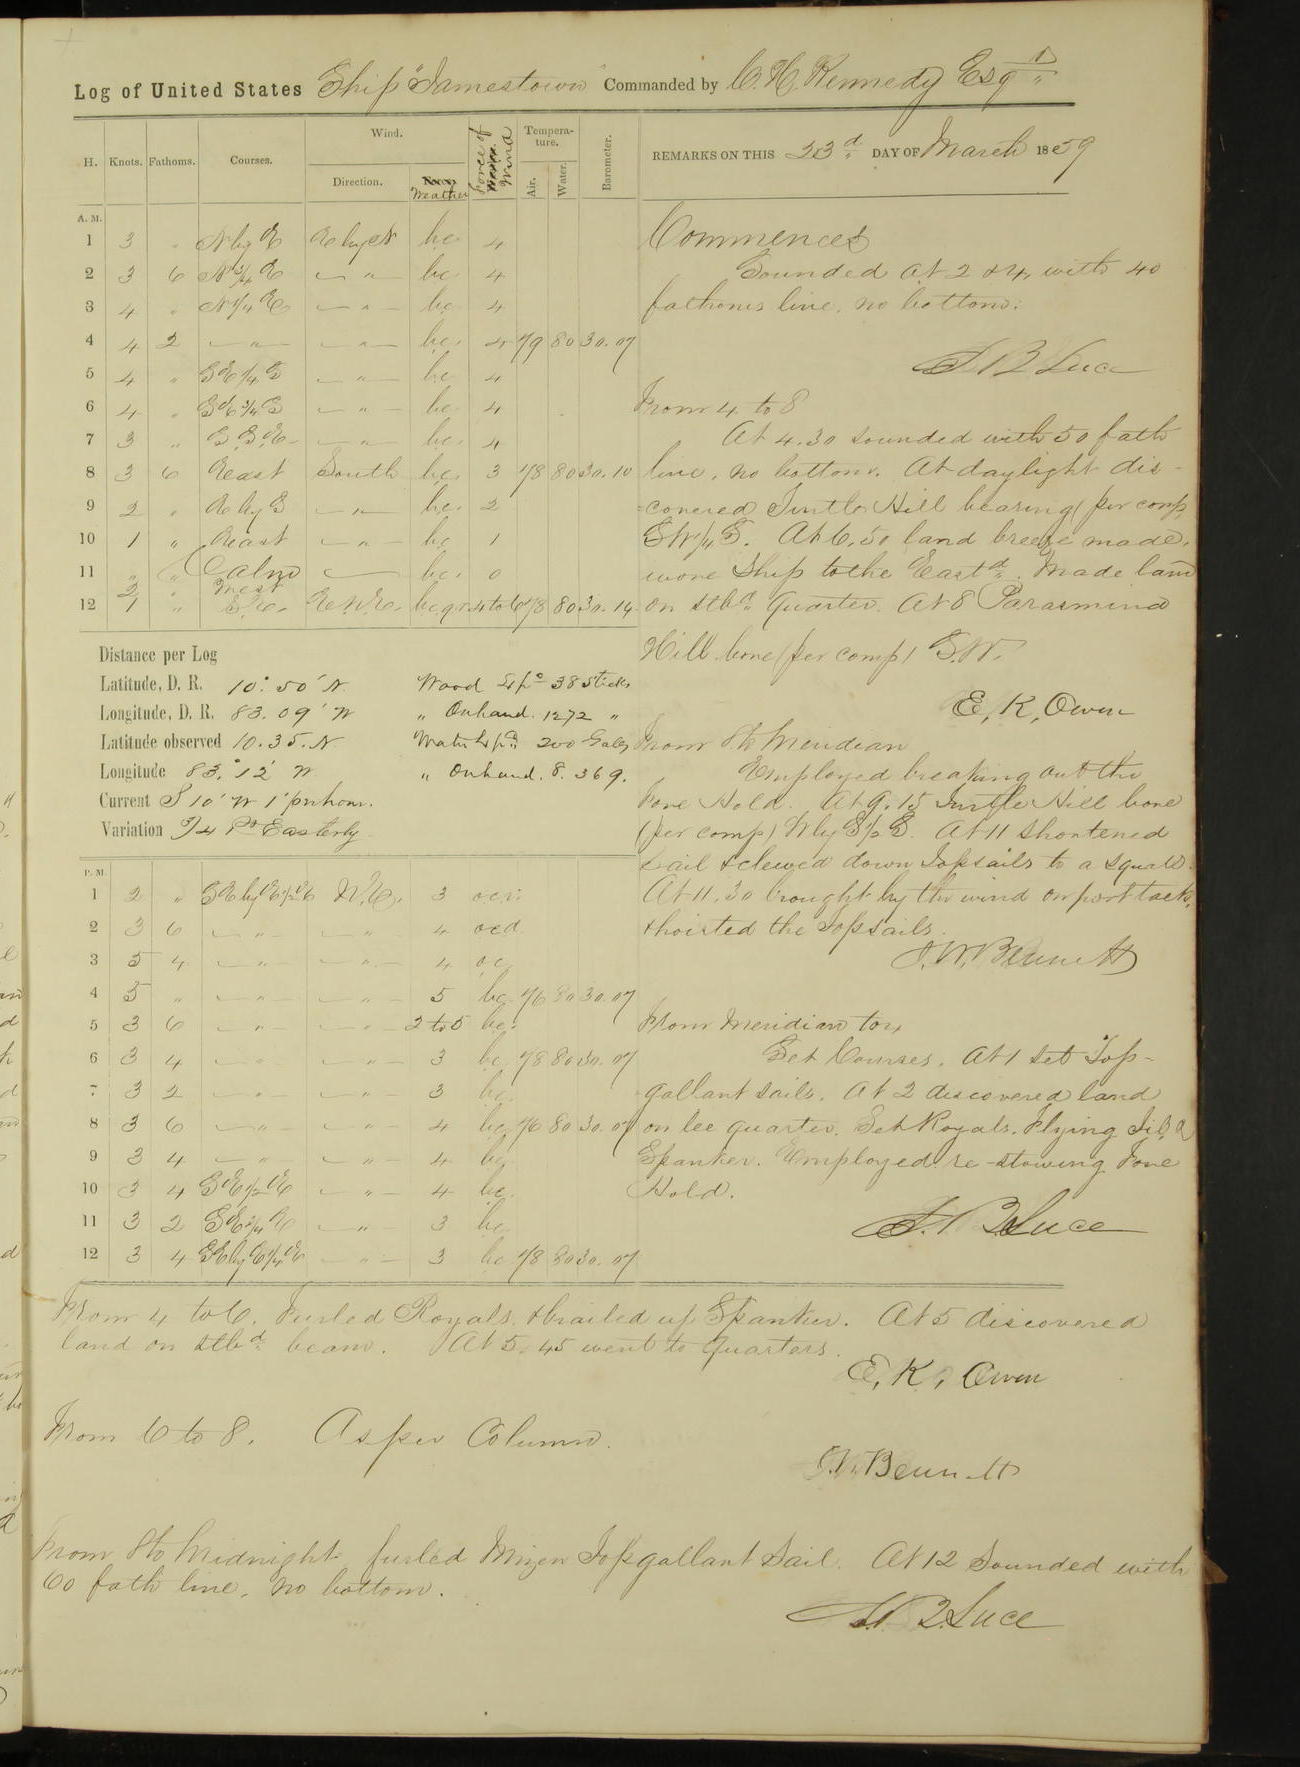 Log of United States Ship "Jamestown" Commanded by C. H. Kennedy Esqr
H. Knots. Fathoms. Courses. Wind. Direction. Weather Force of Wind Temperature. Air. Water. Barometer.
REMARKS ON THIS 23d DAY OF March 1859
A. M.
1 3 " N by E E by N bc 4
2 3 6 N 3/4 E — " — bc 4
3 4 " N 1/4 E — " — bc 4
4 4 2 — " — — " — bc. 4 79 80 30.07
5 4 " SE 1/4 S — " — bc 4
6 4 " SE 3/4 S — " — bc 4
7 3 " S.S.E — " — bc. 4
8 3 6 East South bc. 3 78 80 30.10
9 2 " E by S — " — bc. 2
10 1 " East — " — bc 1
11 " " Calm — bc. 0
12 2 " West
1 " S.E. E.N.E. bcqr. 4 to 6 78 80 30.14
Distance per Log
Latitude, D. R. 10° 50' N
Longitude, D. R. 83.09' W
Latitude observed 10.35.N
Longitude 83.°12' W
Current S 10° W 1' per hour.
Variation 3/4 Pt Easterly
Wood Expd 38 Sticks
" On hand. 1272 "
Water Expd 200 Galls
" On hand. 8.369.
P. M.
1 2 " SE by E 1/2 E N.E. 3 ocr.
2 3 6 — " — — " — 4 ocd
3 5 4 — " — — " — 4 oc
4 5 " — " — — " — 5 bc 76 80 30.07
5 3 6 — " — — " — 2 to 5 bc.
6 3 4 — " — — " — 3 bc 78 80 30.07
7 3 2 — " — — " — 3 bc.
8 3 6 — " — — " — 4 bc 76 80 30.07
9 3 4 — " — — " — 4 bc
10 3 4 SE 1/2 E — " — 4 bc.
11 3 2 SE 3/4 E — " — 3 bc
12 3 4 SE by E 1/4 E — " — 3 bc 78 80 30.07
Commences
Sounded at 2 & 4, with 40
fathoms line, no bottom.
S B Luce
From 4 to 8
At 4.30 sounded with 50 fath
line, no bottom. At daylight dis-
covered Turtle Hill bearing (per comp)
SW 1/4 S. At 6.50 land breeze made,
wore Ship to the Eastd. Made land
on stbd quarter. At 8 Parasmina
Hill bore (per comp) S.W.
E. K. Owen
From 8 to Meridian
Employed breaking out the
Fore Hold. At 9.15 Turtle Hill bore
(per comp) W by S 1/2 S. At 11 shortened
Sail & clewed down Topsails to a squall.
At 11.30 brought by the wind on port tack,
& hoisted the Topsails.
J. W. Bennett
From Meridian to 4
Set Courses. At 1 set Top-
gallant sails. At 2 discovered land
on lee quarter. Set Royals, Flying Jib &
Spanker. Employed re-stowing Fore
Hold.
S. B. Luce
From 4 to 6. Furled Royals, & brailed up Spanker. At 5 discovered
land on stbd beam. At 5.45 went to quarters.
E. K. Owen
From 6 to 8. As per Column.
J. W. Bennett
From 8 to Midnight furled Mizen Topgallant Sail. At 12 Sounded with
60 fath line, no bottom.
S. B. Luce